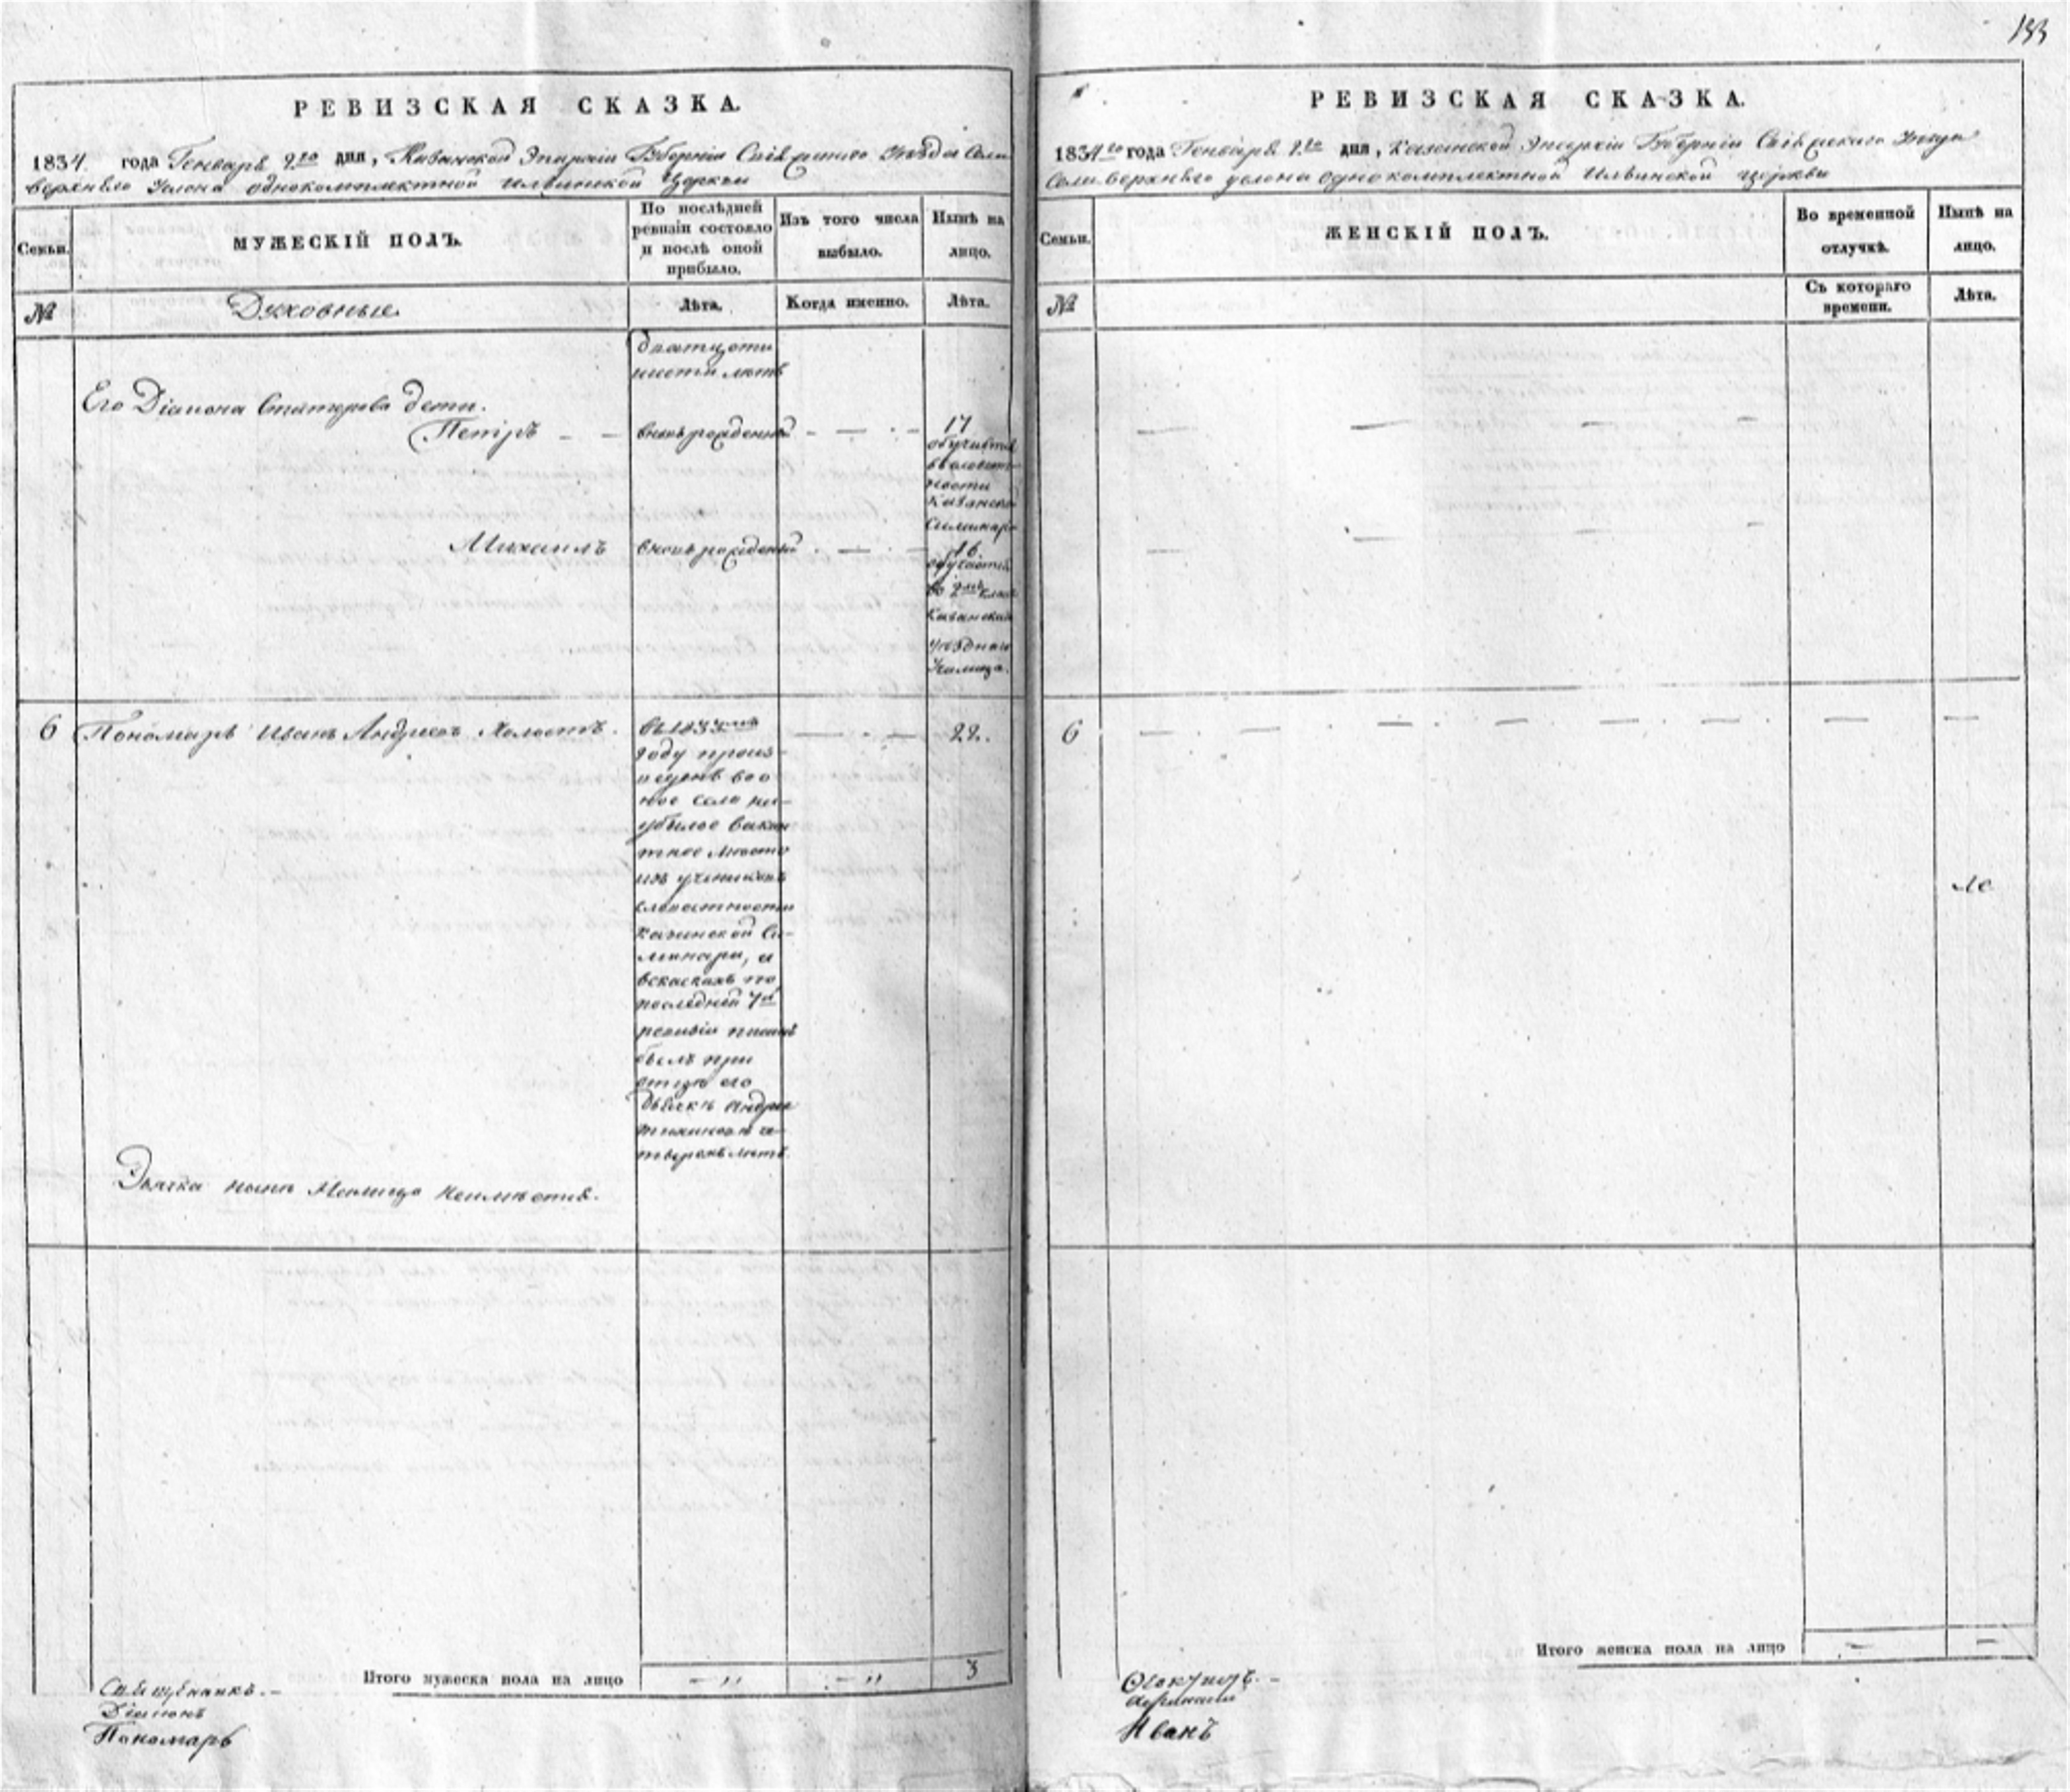 133
РЕВИЗСКАЯ СКАЗКА.
1834 года Генваря 2го дня, Казанской Эпархіи Губерніи Свіяжского Уезда Села
верхняго Услона однокомплектной Ильинской Церкви
Семьи.
МУЖЕСКІЙ ПОЛЪ.
По послѣдней ревизіи состояло и послѣ оной прибыло.
Изъ того числа выбыло.
Нынѣ на лицо.
№
Духовные.
Лѣта.
Когда именно.
Лѣта.
дватцати
шести летъ
Его Діакона дети.
Петръ
вновь рожденный
17
обучается
в словест-
ности
Казанской
Семинаріи
Михаилъ
вновь рожденный
16.
обучается
во 2мъ клас
Казанскаго
Уезднаго
Училища.
6
Пономарь Иванъ Андреевъ Холостъ.
въ 1833мъ
году произ-
веденъ во о-
ное село на
убылое вакан
тное место
изъ учениковъ
словестности
Казанской Се-
минаріи, а
в сказкахъ по
последней 7й
ревизіи писанъ
былъ при
отце его
дьячке Андрее
че-
тырехъ летъ.
22.
Дьячка ныне Налицо неимеется.
Итого мужеска пола на лицо
3
Священникъ.
Діаконъ
Пономарь
РЕВИЗСКАЯ СКАЗКА.
1834го года Генваря 2го дня, Казанской Эпархіи Губерніи Свіяжского Уезда
Села верхняго услона однокомплектной Ильинской церкви
Семьи.
ЖЕНСКІЙ ПОЛЪ.
Во временной отлучкѣ.
Нынѣ на лицо.
№
Съ котораго времени.
Лѣта.
6
Итого женска пола на лицо
Иванъ